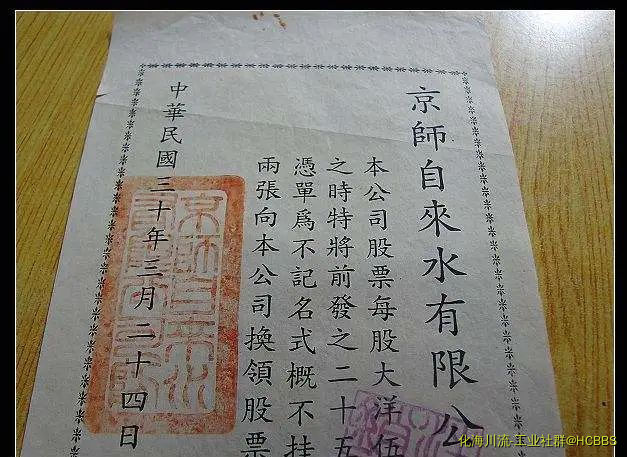 京師自來水有限公
本公司股票每股大洋伍
之時特將前發之二十五
憑單為不記名式概不挂
兩張向本公司換領股票
中華民國三十年三月二十四日
化海川流-玉业社群@HCBBS